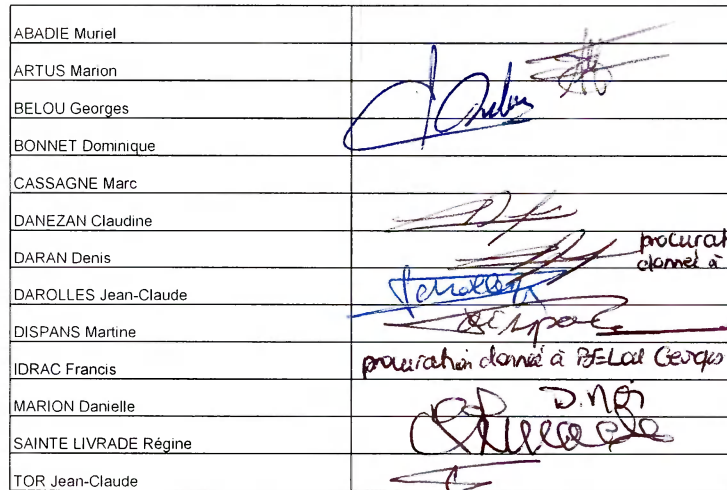 ABADIE Muriel
ARTUS Marion
BELOU Georges
BONNET Dominique
CASSAGNE Marc
DANEZAN Claudine
DARAN Denis
procurat
donnée à
DAROLLES Jean-Claude
DISPANS Martine
IDRAC Francis
procuration donnée à BELOU Georges
MARION Danielle
SAINTE LIVRADE Régine
TOR Jean-Claude